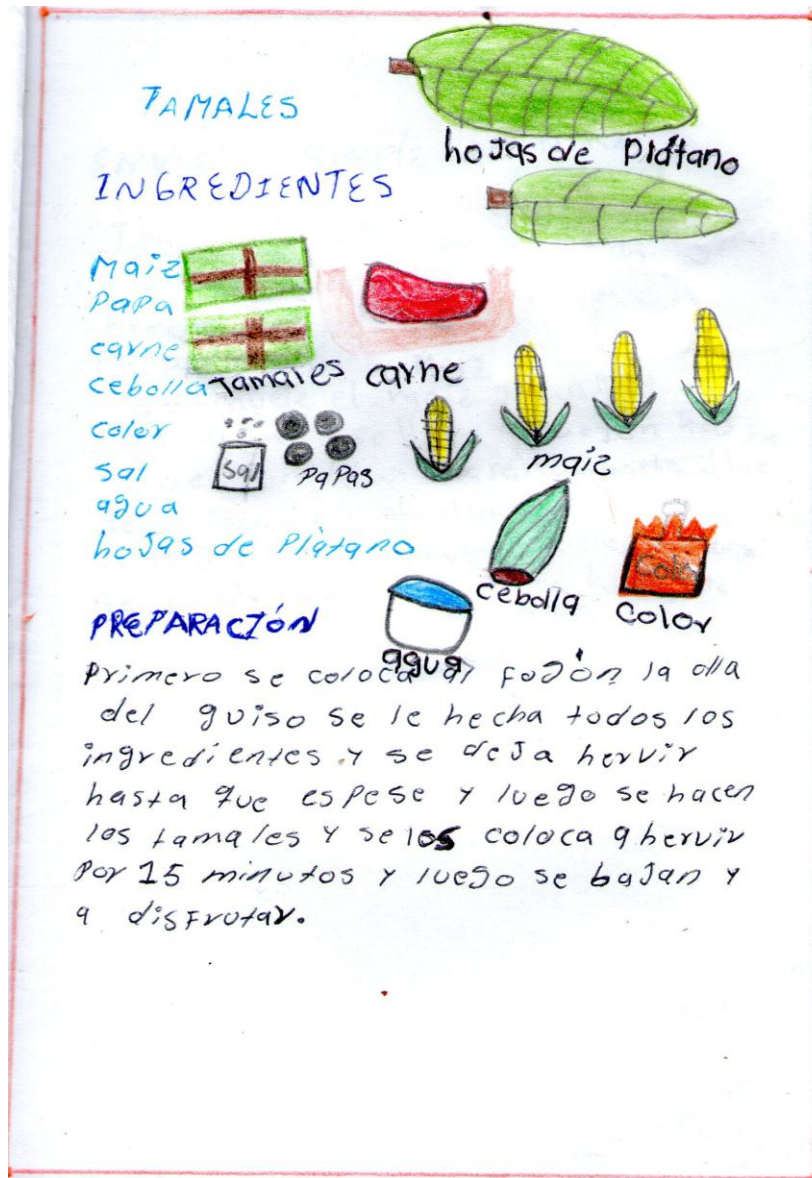 TAMALES
hojas de Plátano
INGREDIENTES
Maiz
Papa
carne
cebolla
Tamales
carne
color
sal
agua
hojas de Plátano
Sal
PaPas
maiz
cebolla
Color
color
agua
PREPARACIÓN
Primero se coloca al fogón la olla
del guiso se le hecha todos los
ingredientes y se deja hervir
hasta que espese y luego se hacen
los tamales y se los coloca a hervir
por 15 minutos y luego se bajan y
a disfrutar.